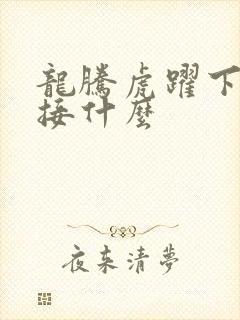 龍騰虎躍下
接什麼
夜來清夢